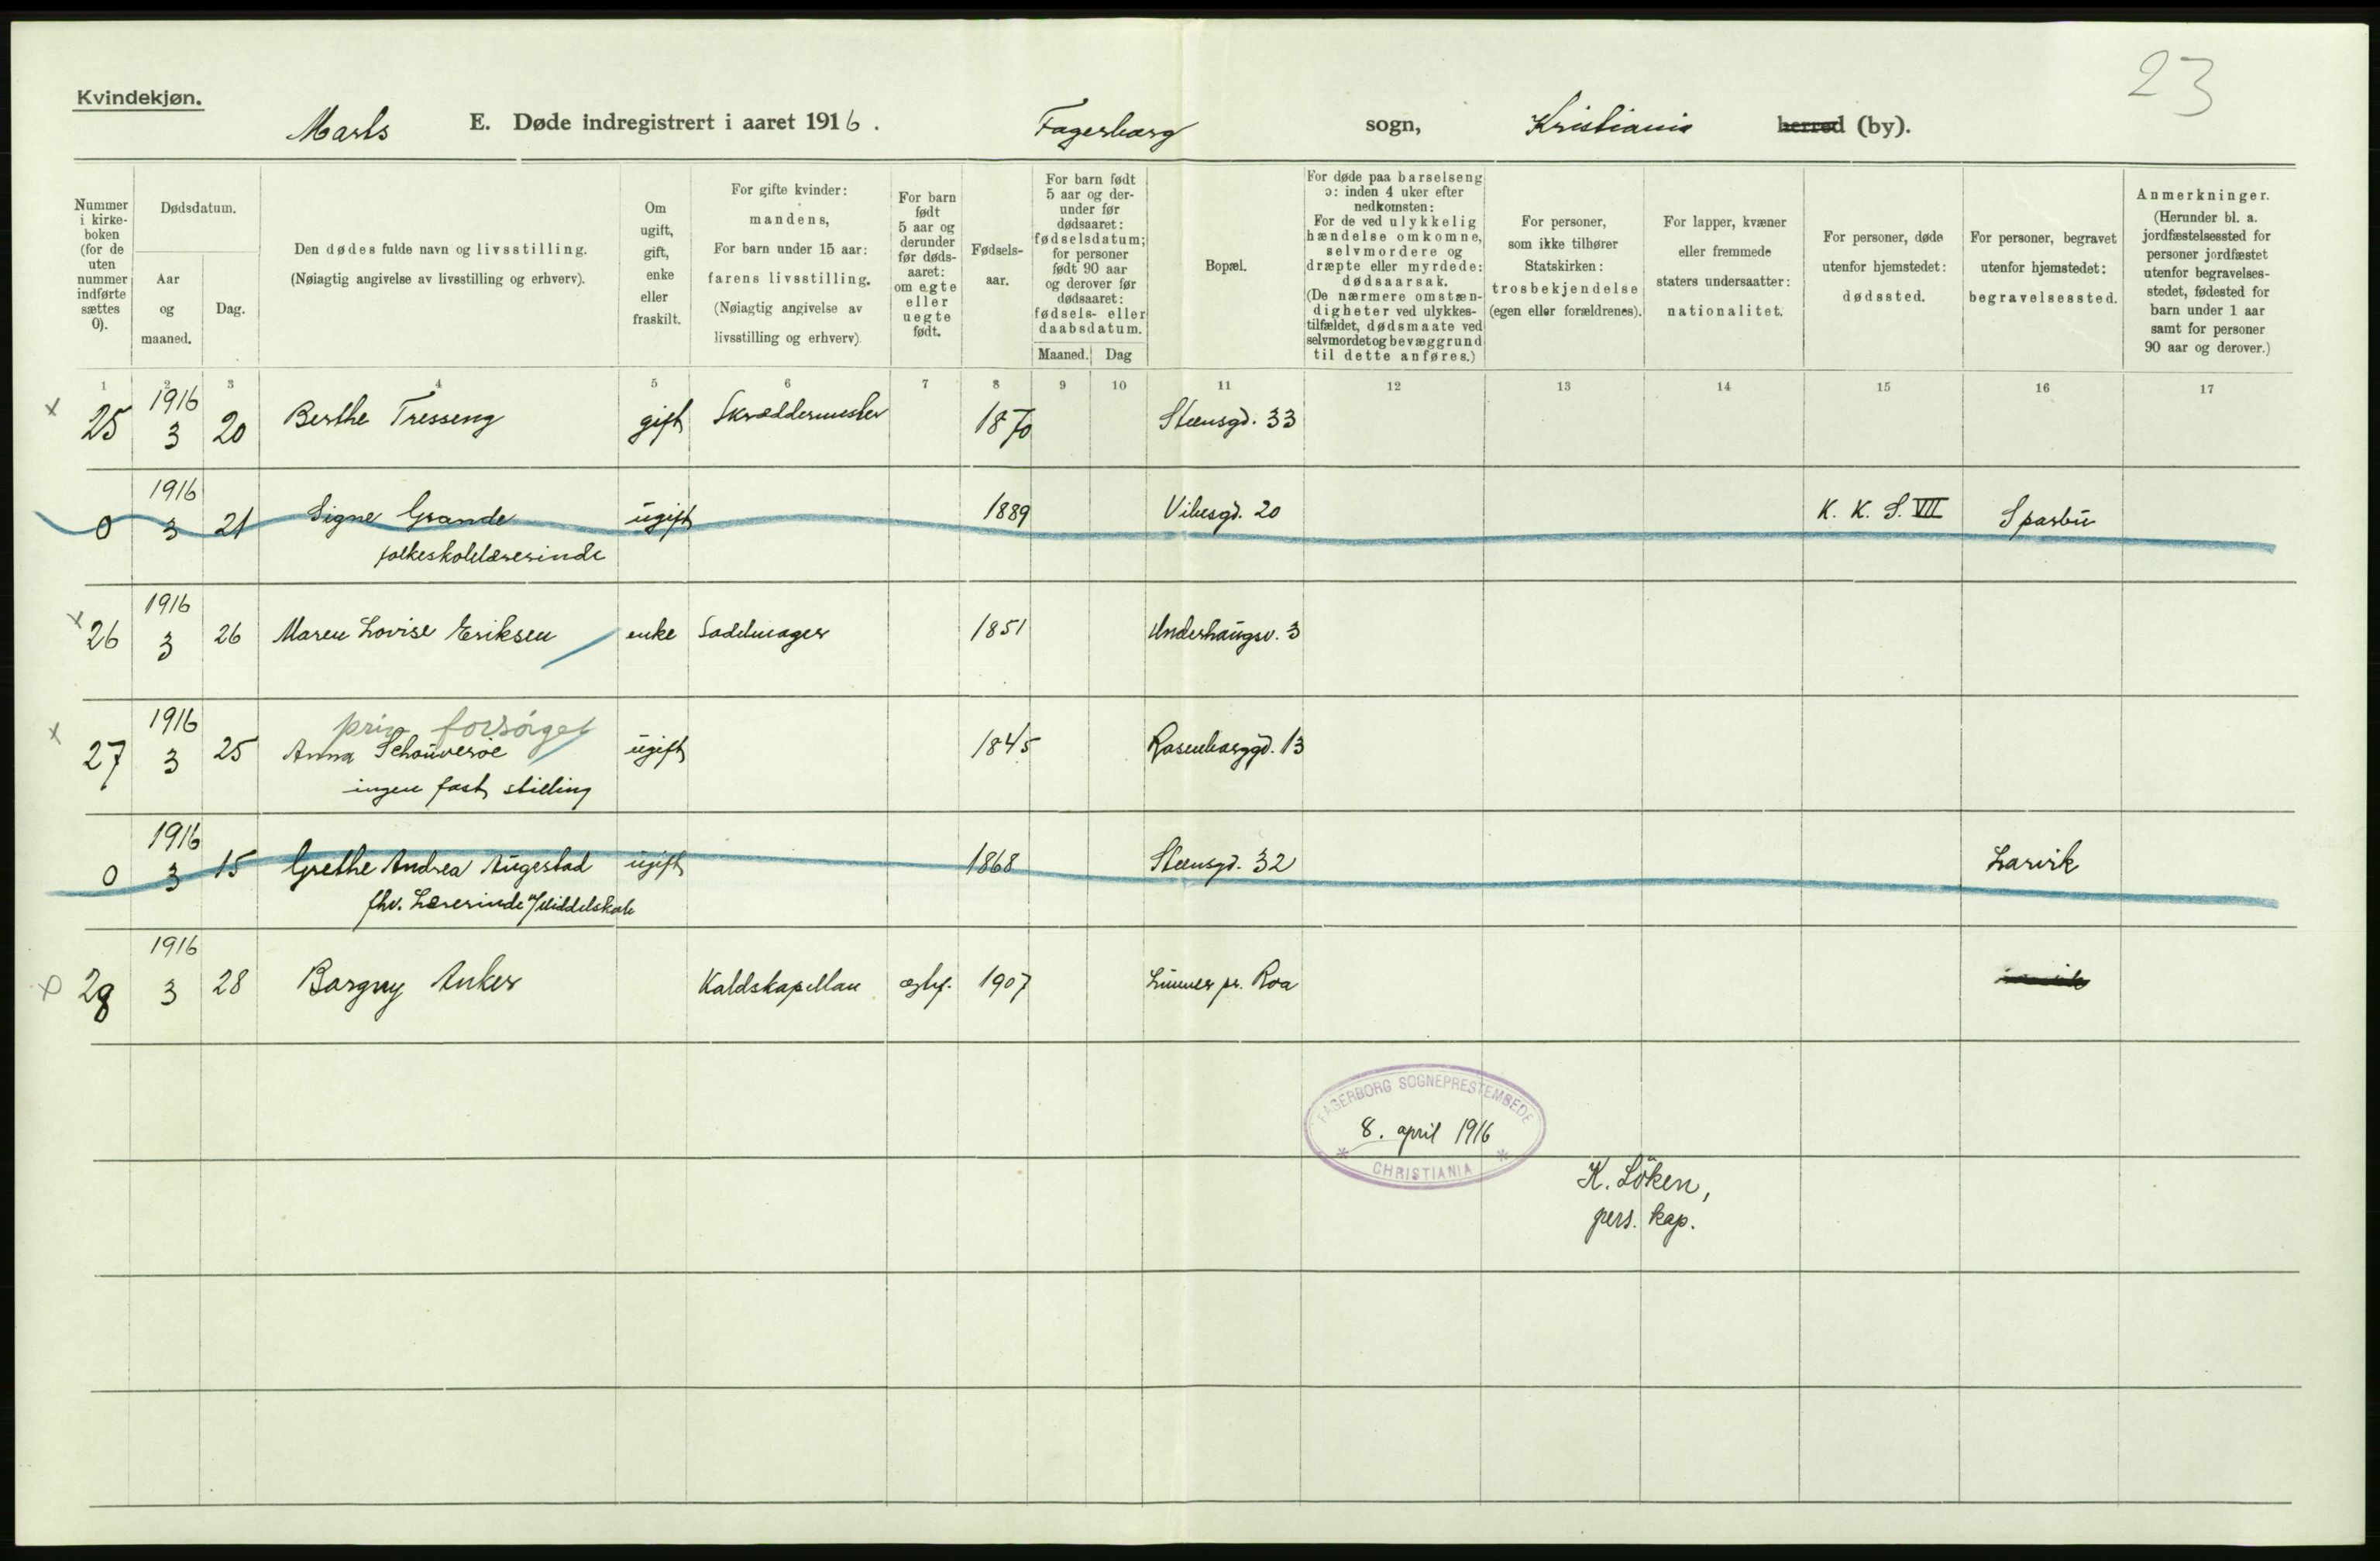 23
Kvindekjøn.
Marts E. Døde indregistrert i aaret 1916. Fagerborg sogn, Kristiania herred (by).
Nummer i kirkeboken (for de uten nummer indførte sættes 0).
Dødsdatum.
Aar og maaned.
Dag.
Den dødes fulde navn og livsstilling.
(Nøiagtig angivelse av livsstilling og erhverv).
Om ugift, gift, enke eller fraskilt.
For gifte kvinder:
mandens,
For barn under 15 aar:
farens livsstilling.
(Nøiagtig angivelse av
livsstilling og erhverv)
For barn født 5 aar og derunder før dødsaaret: om egte eller uegte født.
Fødselsaar.
For barn født
5 aar og der-
under før
dødsaaret:
fødselsdatum;
for personer
født 90 aar
og derover før
dødsaaret:
fødsels- eller
daabsdatum.
Maaned. Dag
Bopæl.
For døde paa barselseng
ɔ: inden 4 uker efter
nedkomsten:
For de ved ulykkelig
hændelse omkomne,
selvmordere og
dræpte eller myrdede:
dødsaarsak.
(De nærmere omstæn-
digheter ved ulykkes-
tilfældet, dødsmaate ved
selvmordet og bevæggrund
til dette anføres.)
For personer,
som ikke tilhører
Statskirken:
trosbekjendelse
(egen eller forældrenes).
For lapper, kvæner
eller fremmede
staters undersaatter:
nationalitet.
For personer, døde
utenfor hjemstedet:
dødssted.
For personer, begravet
utenfor hjemstedet:
begravelsessted.
Anmerkninger.
(Herunder bl. a.
jordfæstelsessted for
personer jordfæstet
utenfor begravelses-
stedet, fødested for
barn under 1 aar
samt for personer
90 aar og derover.)
1 2 3 4 5 6 7 8 9 10 11 12 13 14 15 16 17
x 25 1916 3 20 Berthe Tresseng gift Skræddermester 1870 Stensgd. 33
0 1916 3 21 Signe Grande ugift 1889 Vibesgd. 20 K. K. S. VII Sparbu
folkeskolelærerinde
x 26 1916 3 26 Maren Lovise Eriksen enke Sadelmager 1851 Underhaugsv. 3
priv. forsørget
x 27 1916 3 25 Anna Schouverøe ugift 1845 Rosenborggd. 13
ingen fast stilling
0 1916 3 15 Grethe Andrea Augestad ugift 1868 Stensgd. 32 Larvik
fhv. Lærerinde v/Middelskole
28 1916 3 28 Borgny Anker Kaldskapellan egtef. 1907 Lunner pr. Roa
FAGERBORG SOGNEPRESTEMBEDE
8. april 1916
* CHRISTIANIA *
K. Löken,
pers. kap.